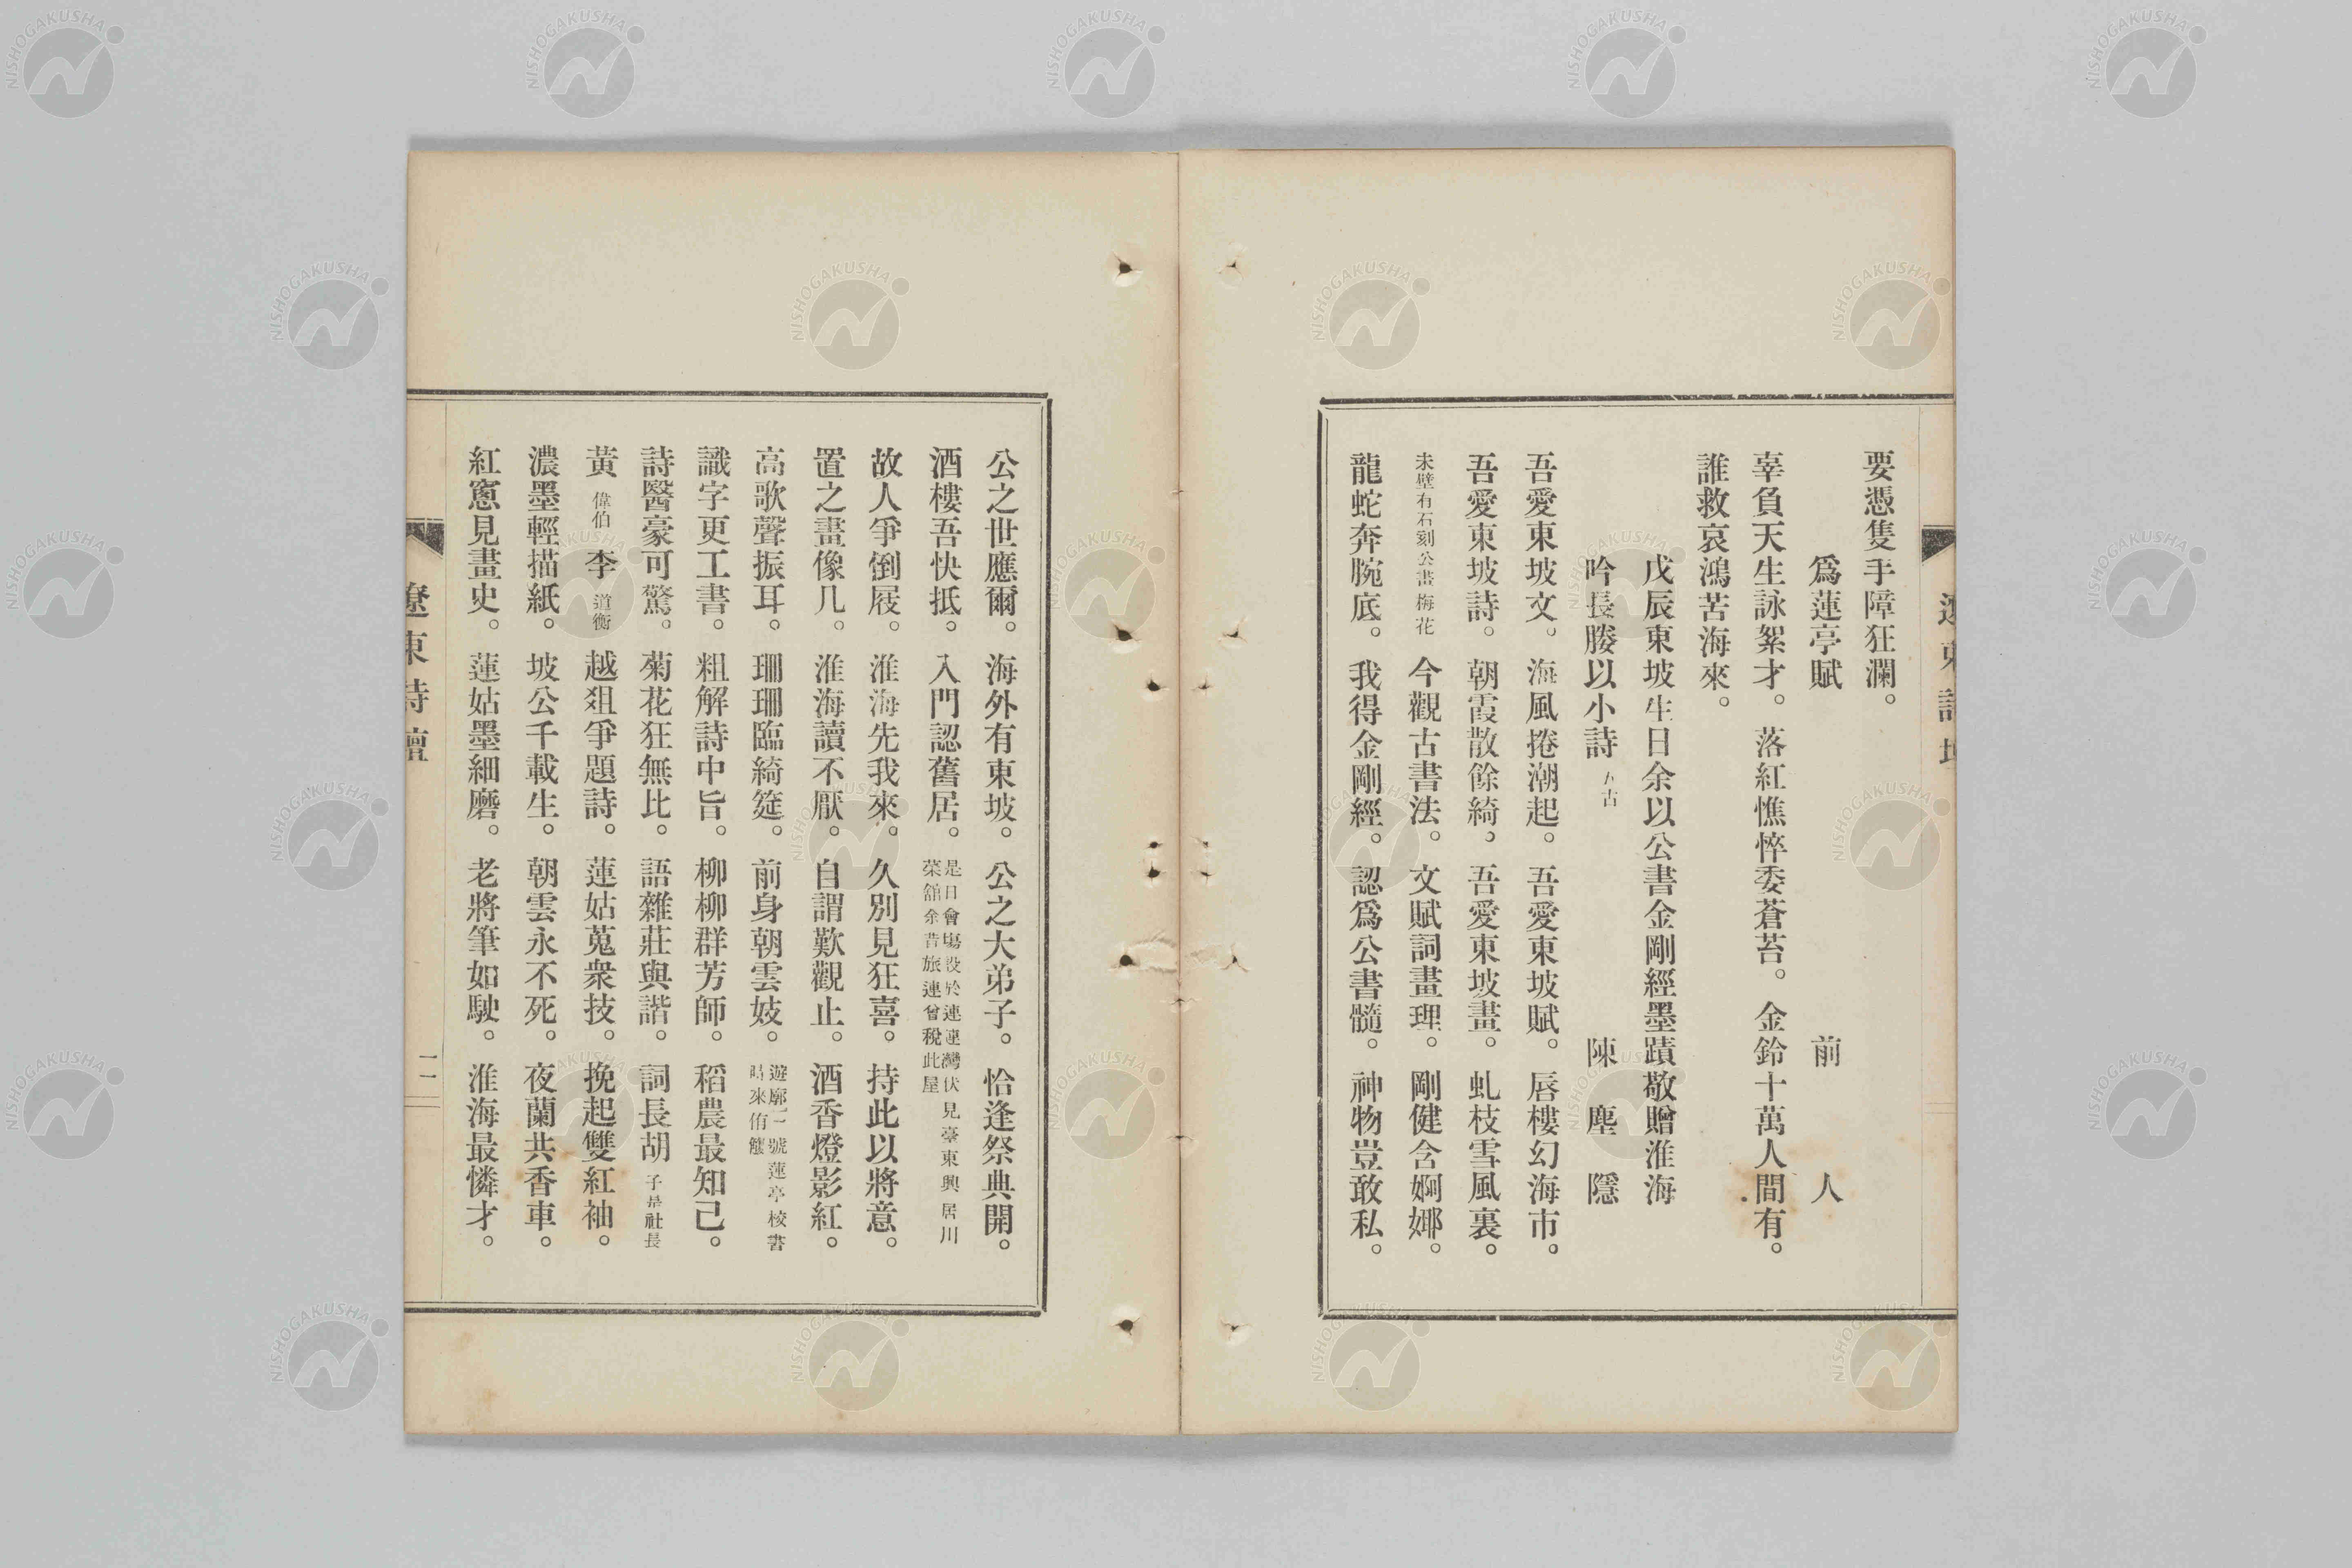 要憑隻手障狂瀾。
爲蓮亭賦 前人
辜負天生詠絮才。落紅憔悴委蒼苔。金鈴十萬人間有。
誰救哀鴻苦海來。
戊辰東坡生日余以公書金剛經墨蹟敬贈淮海
吟長媵以小詩 五古 陳塵隱
吾愛東坡文。海風捲潮起。吾愛東坡賦。唇樓幻海市。
吾愛東坡詩。朝霞散餘綺。吾愛東坡畫。虬枝雪風裏。
未壁有石刻公畫梅花 今觀古書法。文賦詞畫理。剛健含婀娜。
龍蛇奔腕底。我得金剛經。認爲公書髓。神物豈敢私。
遼東詩壇
公之世應爾。海外有東坡。公之大弟子。恰逢祭典開。
酒樓吾快抵。入門認舊居。是日會場設於連連灣伏見臺東興居川
菜館余昔旅連曾稅此屋
故人爭倒屐。淮海先我來。久別見狂喜。持此以將意。
置之畫像几。淮海讀不厭。自謂歎觀止。酒香燈影紅。
高歌聲振耳。珊珊臨綺筵。前身朝雲妓。遊廓一一號蓮亭校書
時來侑觴
識字更工書。粗解詩中旨。柳柳群芳師。稻農最知己。
詩醫豪可驚。菊花狂無比。語雜莊與諧。詞長胡 子晉社長
黃 偉伯 李 道衡 越俎爭題詩。蓮姑蒐衆技。挽起雙紅袖。
濃墨輕描紙。坡公千載生。朝雲永不死。夜蘭共香車。
紅窻見畫史。蓮姑墨細磨。老將筆如駛。淮海最憐才。
遼東詩壇
一一